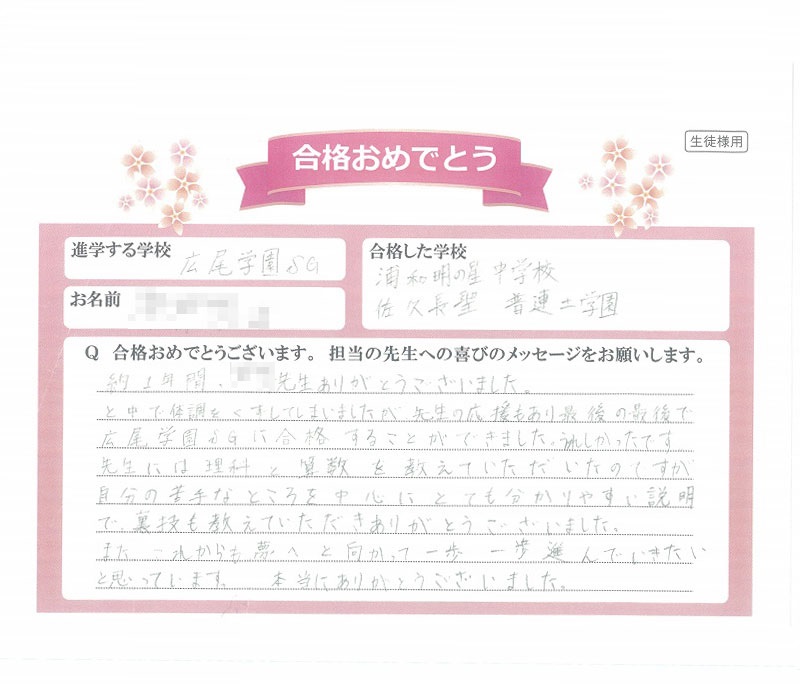 生徒様用
合格おめでとう
進学する学校
広尾学園SG
お名前
合格した学校
浦和明の星中学校
佐久長聖 普連土学園
Q 合格おめでとうございます。担当の先生への喜びのメッセージをお願いします。
約1年間、先生ありがとうございました。
と中で体調をくずしてしまいましたが先生の応援もあり最後の最後で
広尾学園SGに合格することができました。うれしかったです
先生には理科と算数を教えていただいたのですが
自分の苦手なところを中心にとても分かりやすい説明
で裏技も教えていただきありがとうございました。
また これからも夢へと向かって一歩一歩進んでいきたい
と思っています。 本当にありがとうございました。